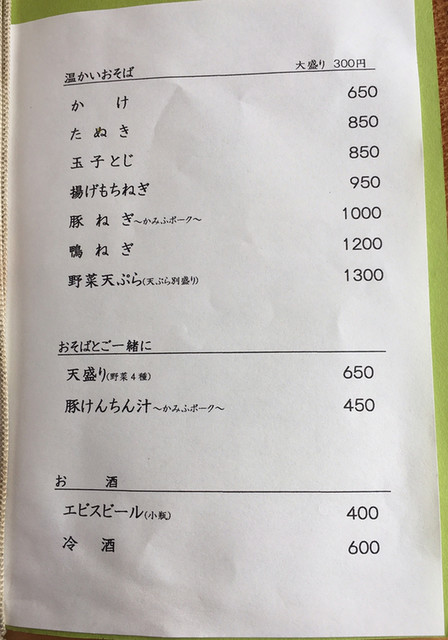 温かいおそば 大盛り 300円
かけ 650
たぬき 850
玉子とじ 850
揚げもちねぎ 950
豚ねぎ～かみふポーク～ 1000
鴨ねぎ 1200
野菜天ぷら(天ぷら別盛り) 1300
おそばとご一緒に
天盛り(野菜4種) 650
豚けんちん汁～かみふポーク～ 450
お酒
エビスビール(小瓶) 400
冷酒 600